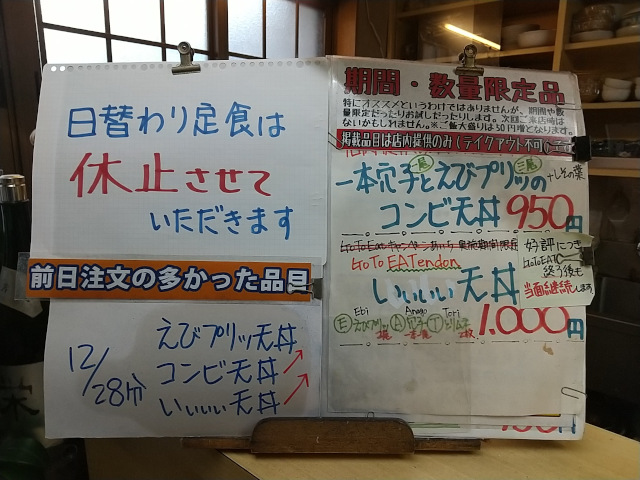 日替わり定食は
休止させて
いただきます
前日注文の多かった品目
12/28分
えびプリッ天丼
コンビ天丼
いぃぃぃ天丼
期間・数量限定品
特にオススメというわけではありませんが、期間や数
量限定だったりお試しだったりします。次回ご来店時は
ないかもしれません。※ご飯大盛りは50円増となります。
掲載品目は店内提供のみ(テイクアウト不可)
一本穴子とえびプリッの
+しその葉
コンビ天丼 950円
GoTo EATendon
いぃぃぃ天丼
1,000円
Ebi Anago Tori
Ⓔえびプリッ Ⓐ穴子 Ⓣとりムネ
好評につき
GoToEAT
終了後も
当面継続します